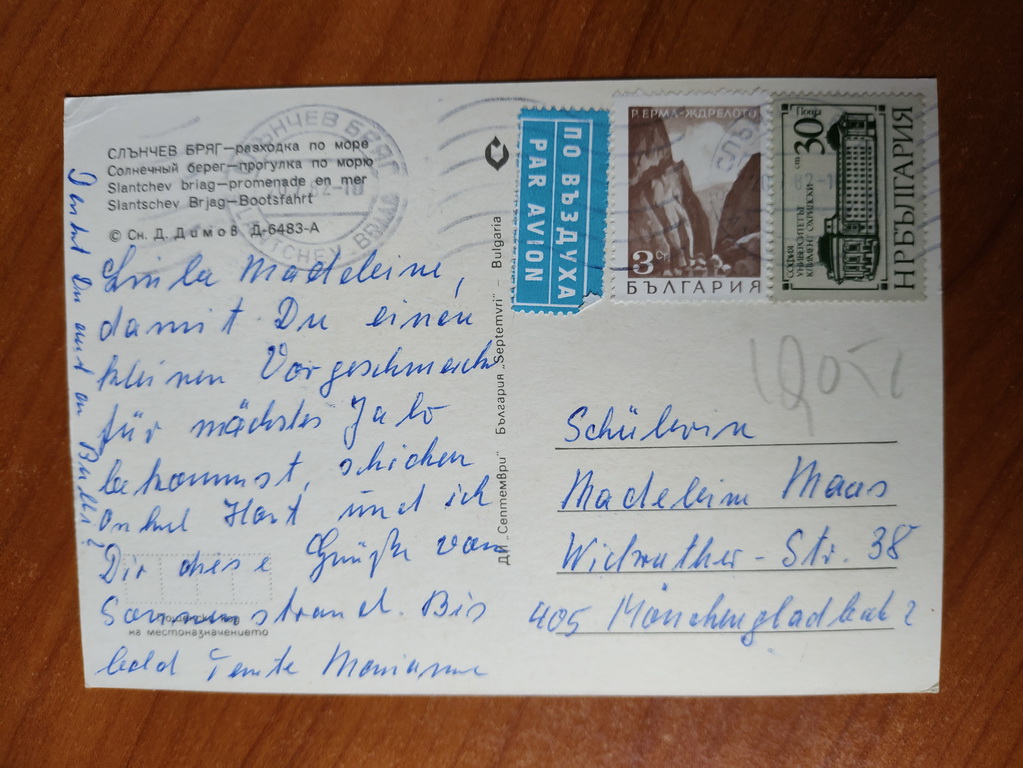 СЛЪНЧЕВ БРЯГ—разходка по море
Солнечный берег—прогулка по морю
Slantchev briag—promenade en mer
Slantschev Brjag—Bootsfahrt
© Сн. Д. Димов Д-6483-А
СЛЪНЧЕВ БРЯГ
SLANTCHEV BRIAG
Madeleine,
damit Du einen
kleinen Vorgeschmack
für nächstes Jahr
bekommst, schicken
Onkel Horst und ich
Dir diese Grüße vom
Sonnenstrand. Bis
bald Tante Marianne
Denkst Du auch an Bulli?
на местоназначението
ДП „Септември“ България „Septemvri“ - Bulgaria
ПО ВЪЗДУХА
PAR AVION
Р. ЕРМА-ЖДРЕЛОТО
3 Ст.
БЪЛГАРИЯ
Поща
30 ст.
СОФИЯ
УНИВЕРСИТЕТЪТ
КЛИМЕНТ ОХРИДСКИ
НР БЪЛГАРИЯ
Schülerin
Madeleine Maas
Wickrather-Str. 38
405 Mönchengladbach 2